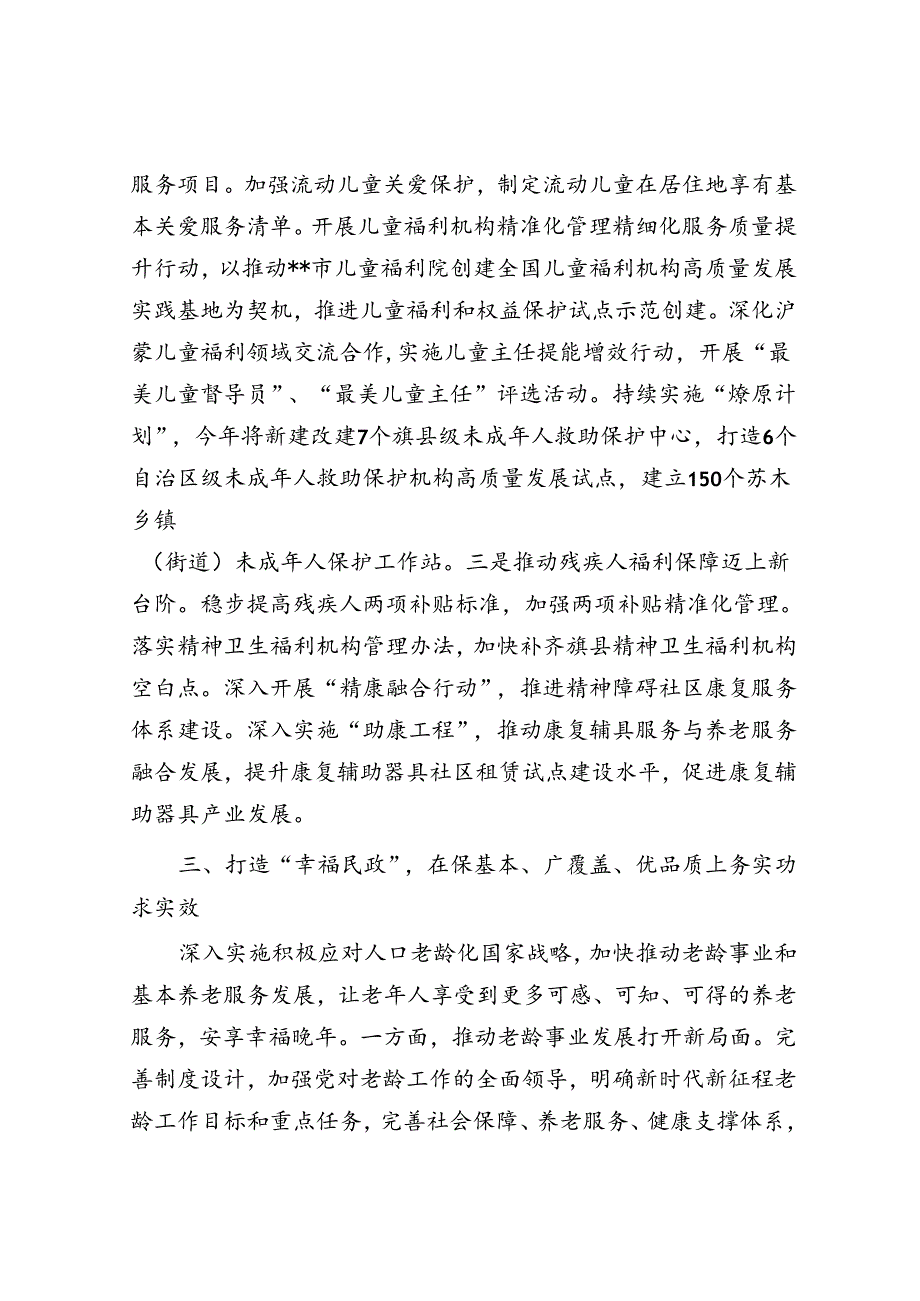 服务项目。加强流动儿童关爱保护，制定流动儿童在居住地享有基
本关爱服务清单。开展儿童福利机构精准化管理精细化服务质量提
升行动，以推动**市儿童福利院创建全国儿童福利机构高质量发展
实践基地为契机，推进儿童福利和权益保护试点示范创建。深化沪
蒙儿童福利领域交流合作,实施儿童主任提能增效行动，开展“最
美儿童督导员”、“最美儿童主任”评选活动。持续实施“燎原计
划”，今年将新建改建7个旗县级未成年人救助保护中心，打造6个
自治区级未成年人救助保护机构高质量发展试点，建立150个苏木
乡镇
（街道）未成年人保护工作站。三是推动残疾人福利保障迈上新
台阶。稳步提高残疾人两项补贴标准，加强两项补贴精准化管理。
落实精神卫生福利机构管理办法，加快补齐旗县精神卫生福利机构
空白点。深入开展“精康融合行动”，推进精神障碍社区康复服务
体系建设。深入实施“助康工程”，推动康复辅具服务与养老服务
融合发展，提升康复辅助器具社区租赁试点建设水平，促进康复辅
助器具产业发展。
三、打造“幸福民政”，在保基本、广覆盖、优品质上务实功
求实效
深入实施积极应对人口老龄化国家战略，加快推动老龄事业和
基本养老服务发展，让老年人享受到更多可感、可知、可得的养老
服务，安享幸福晚年。一方面，推动老龄事业发展打开新局面。完
善制度设计，加强党对老龄工作的全面领导，明确新时代新征程老
龄工作目标和重点任务，完善社会保障、养老服务、健康支撑体系，